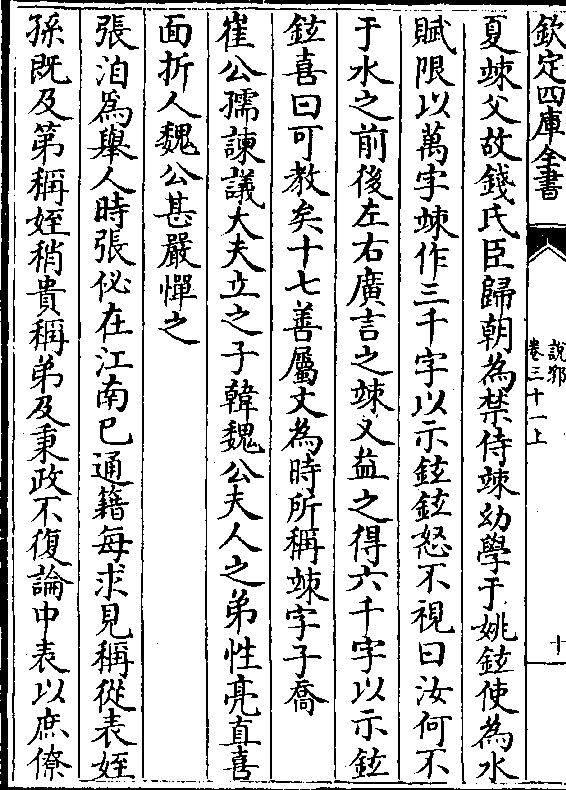 欽定四庫全書
說郛
卷三十一上
十
夏竦父故錢氏臣歸朝為禁侍竦幼學于姚鉉使為水
賦限以萬字竦作三千字以示鉉鉉怒不視曰汝何不
于水之前後左右廣言之竦又益之得六千字以示鉉
鉉喜曰可教矣十七善屬文為時所稱竦字子喬
崔公孺諫議大夫立之子韓魏公夫人之弟性亮直喜
面折人魏公甚嚴憚之
張洎為舉人時張佖在江南已通籍每求見稱從表姪
孫既及第稱姪稍貴稱弟及秉政不復論中表以庶僚